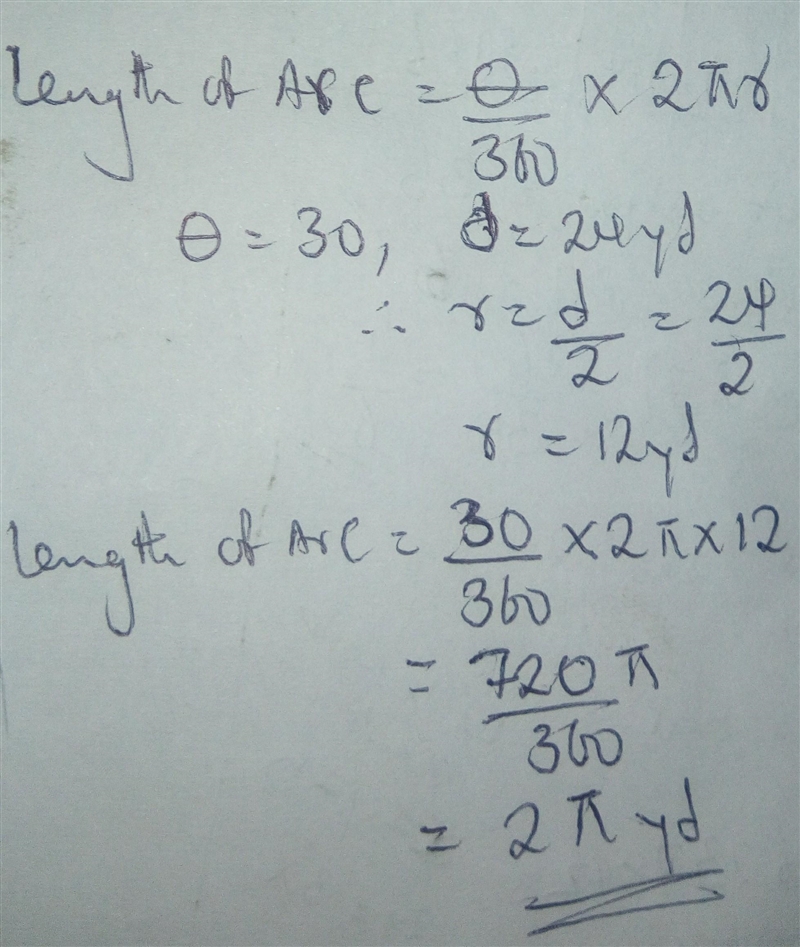 Length of Arc = θ/360 × 2πr
θ = 30, d = 24yd
∴ r = d/2 = 24/2
r = 12yd
Length of Arc = 30/360 × 2π × 12
= 720π/360
= 2π yd